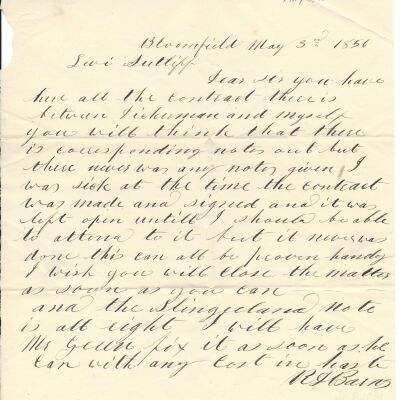 Bloomfield May 3rd 1856
Levi Sutliff
Dear sir you have
here all the contract there is
between Dickerman and myself
you will think that there
is corresponding notes out but
there never was any notes given I
was sick at the time the contract
was made and signed and it was
left open untill I should be able
to attend to it but it never was
done this can all be proven handy
I wish you will close the matter
as soon as you can
and the Slingerland note
is all right I will have
Mr Green fix it as soon as he
can with any cost in haste